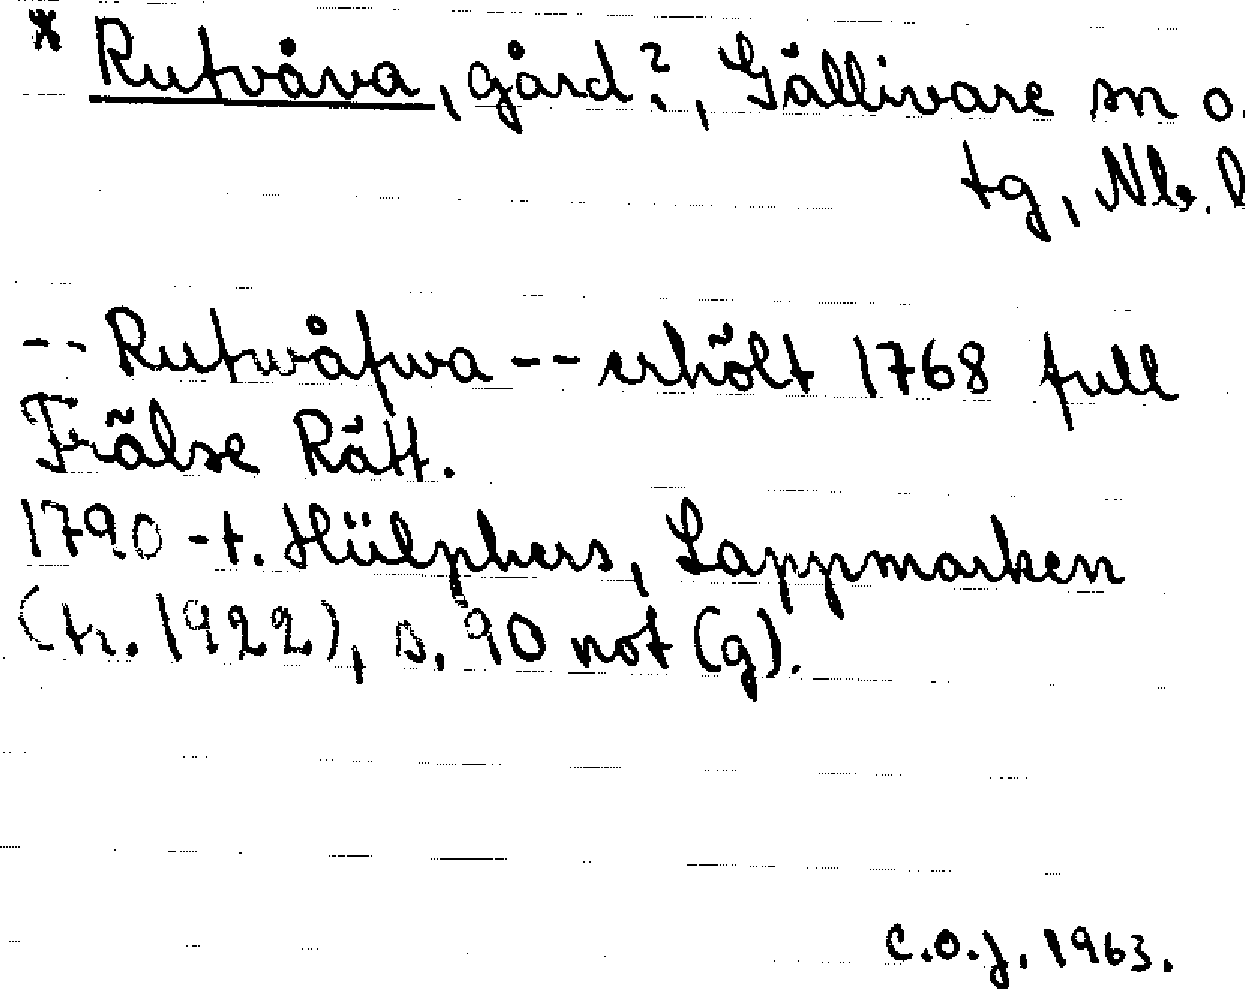 * Rutvåva, gård?, Gällivare sn o.
tg, Nb. l
-- Rutwåfwa -- erhölt 1768 full
Frälse Rätt.
1790-t. Hülphers, Lappmarken
(tr. 1922), s. 90 not (g).
C.O.J. 1963.